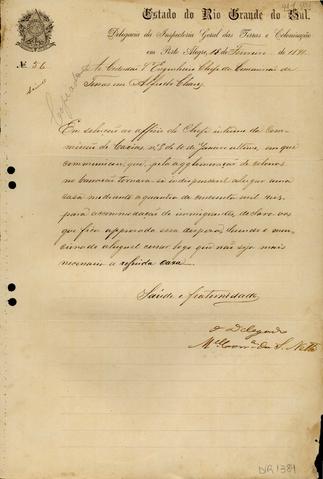 Estado do Rio Grande do Sul.
Delegacia da Inspectoria Geral das Terras e Colonisação
em Porto Alegre, 18 de Fevereiro de 1891.
Nº 56
Ao Cidadão Engenheiro Chefe da Commissão de
Terras em Alfredo Chaves
Em solução ao officio do Chefe interino da Com-
missão de Caxias, nº 3 de 10 de Janeiro ultimo, em que
communicou que, pela agglomeração de colonos
no barracão tornara-se indispensavel alugar uma
casa mediante a quantia de mil reis,
para accommodação de immigrantes, declaro-vos
que fica approvada essa despeza, devendo o men-
cionado aluguel cessar logo que não seja mais
necessaria a referida casa.
Saúde e fraternidade
O Delegado
Mel da S. Netto
DVR 1384